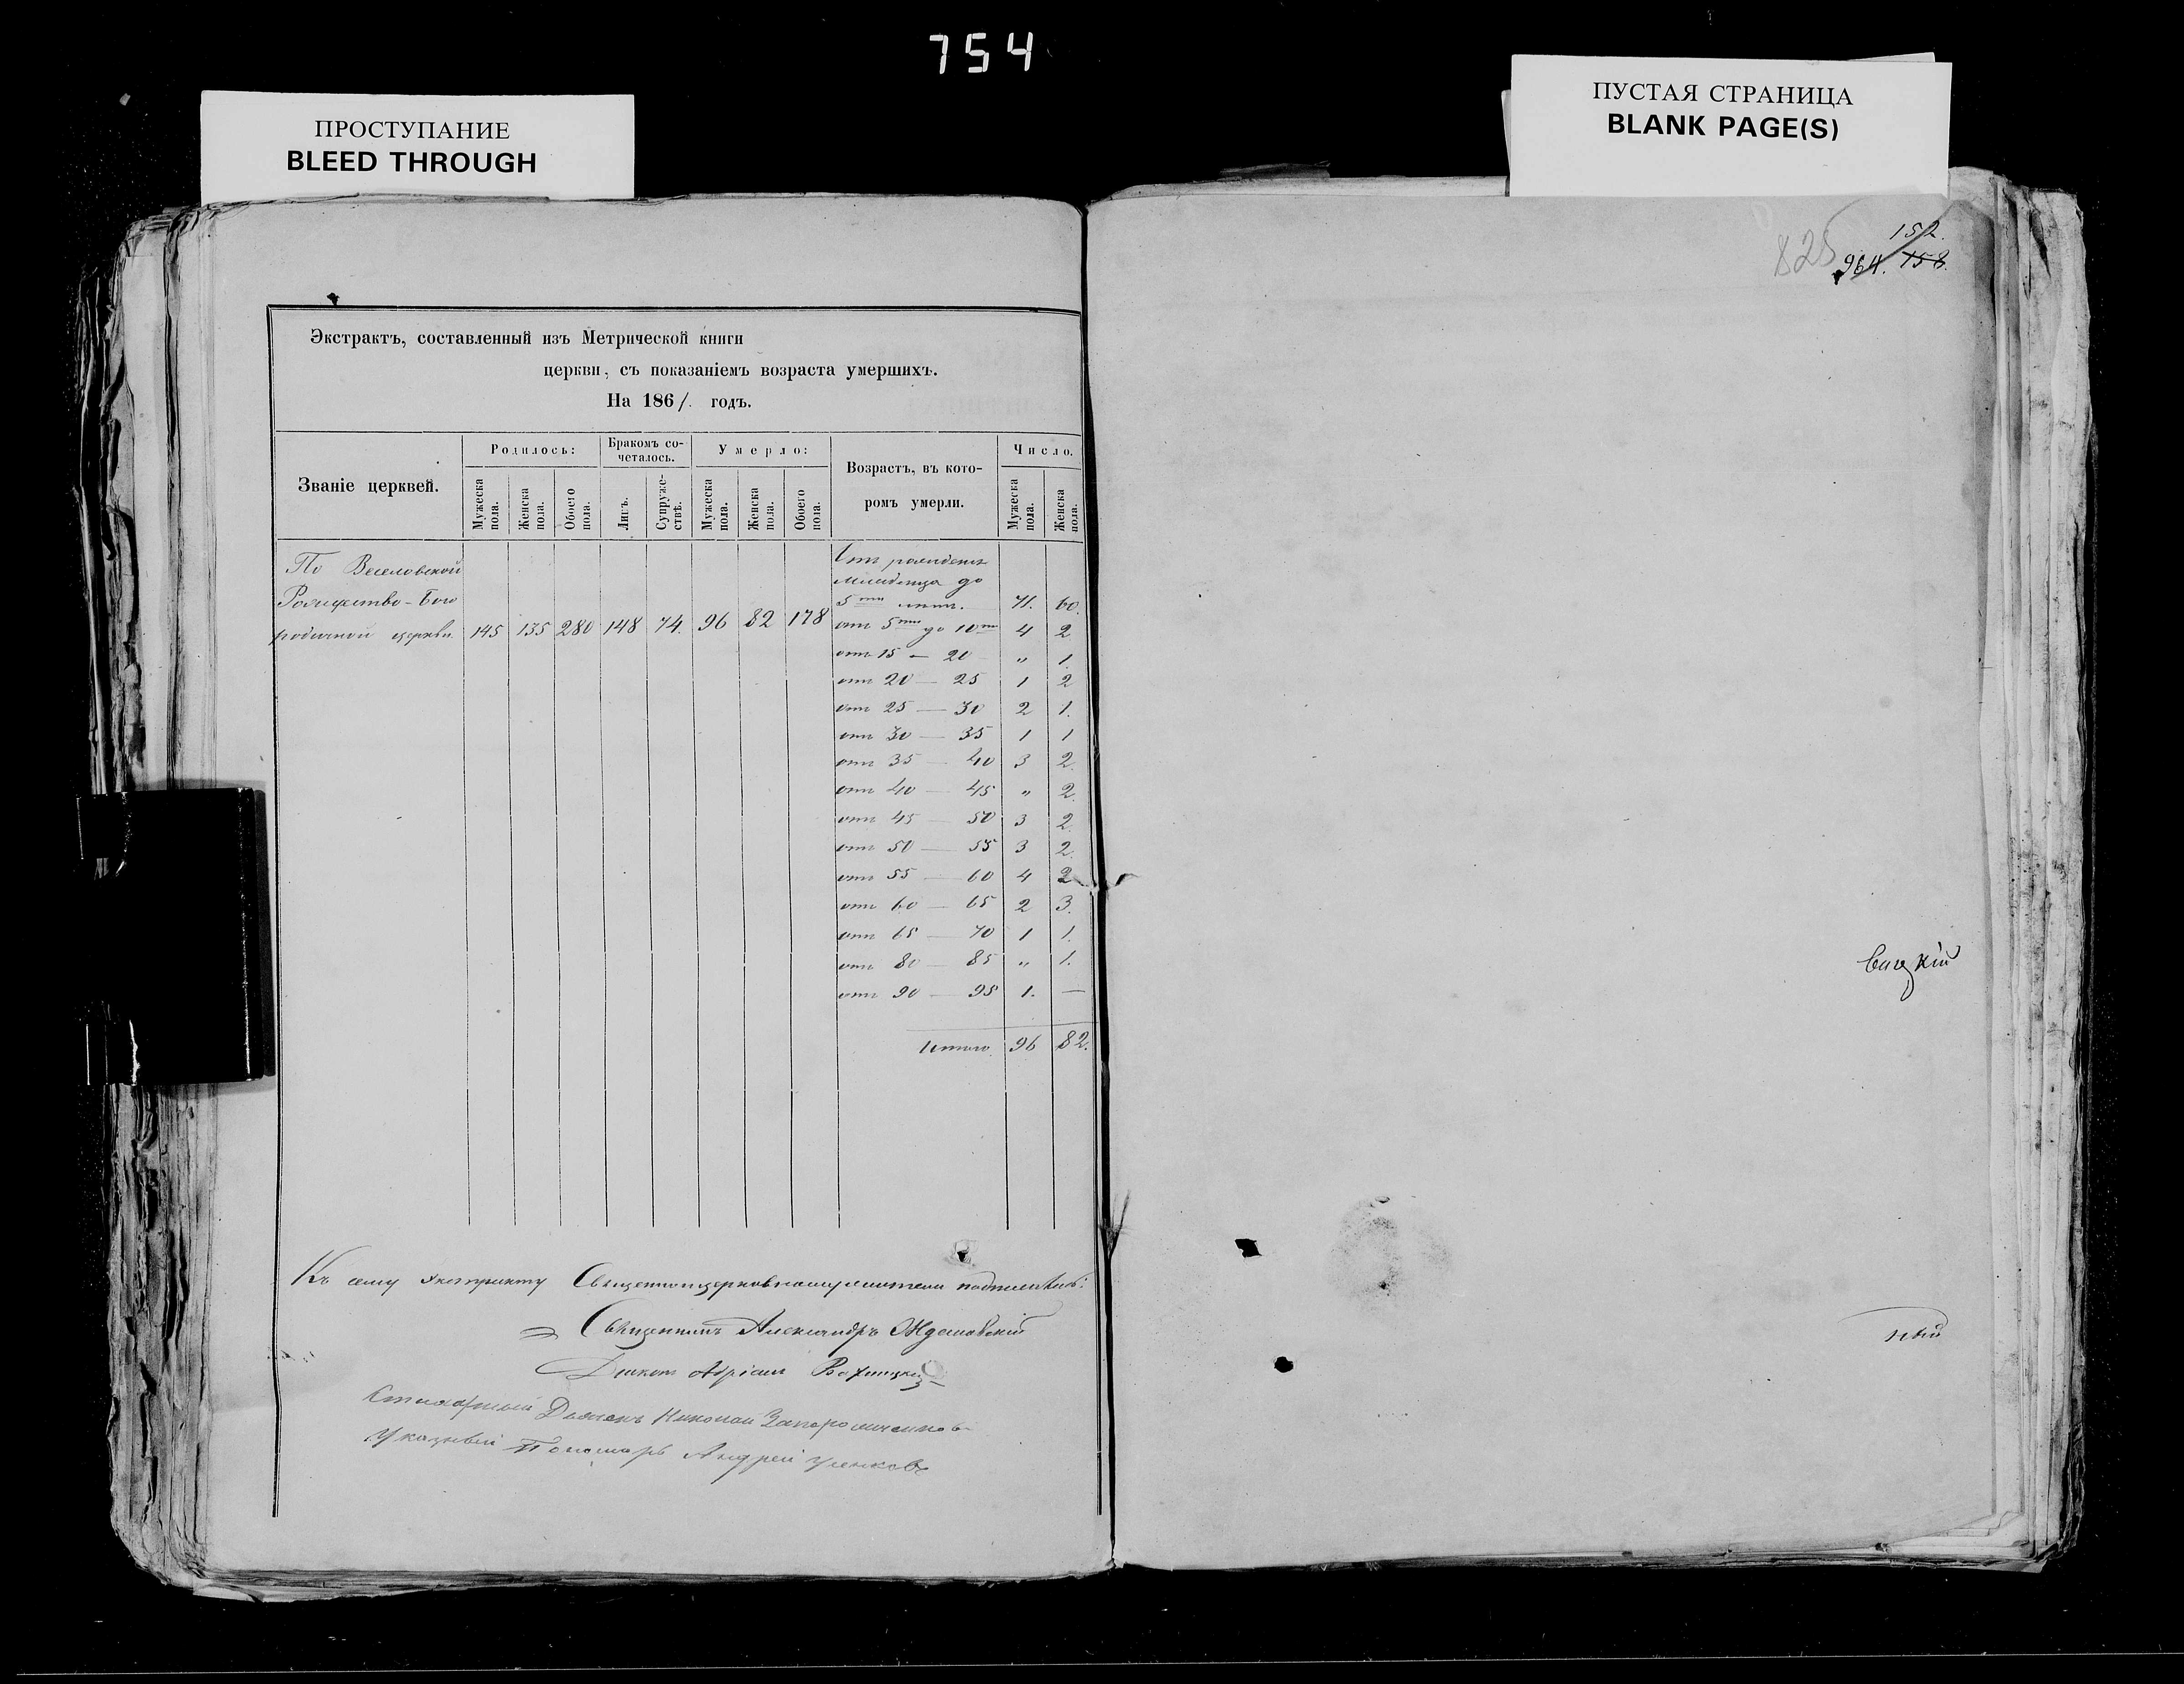 754
ПРОСТУПАНИЕ
BLEED THROUGH
ПУСТАЯ СТРАНИЦА
BLANK PAGE(S)
Экстрактъ, составленный изъ Метрической книги
церкви, съ показаніемъ возраста умершихъ.
На 1861. годъ.
Званіе церквей.
Родилось:
Мужеска пола.
Женска пола.
Обоего пола.
Бракомъ со-
четалось.
Лицъ.
Супруже-
ствѣ.
Умерло:
Мужеска пола.
Женска пола.
Обоего пола.
Возрастъ, въ кото-
ромъ умерли.
Число.
Мужеска пола.
Женска пола.
По Веселовской
Рождество-Бого
родичной церкви. 145 135 280 148 74. 96 82 178
младенца до
5ти лѣтъ. 71. 60.
отъ 5ти до 10ти 4 2
отъ 15 — 20 „ 1.
отъ 20 — 25 1 2
отъ 25 — 30 2 1.
отъ 30 — 35 1 1
отъ 35 — 40 3 2.
отъ 40 — 45 „ 2.
отъ 45 — 50 3 2.
отъ 50 — 55 3 2.
отъ 55 — 60 4 2
отъ 60 — 65 2 3.
отъ 65 — 70 1 1.
отъ 80 — 85 „ 1.
отъ 90 — 95 1. —
Итого 96 82.
Къ сему экстракту Священноцерковнослужители подписались:
Священникъ Александръ
Діаконъ Адріанъ
Стихарный Дьячекъ Николай
Указный Пономарь Андрей
825
152.
964. 158.
ный